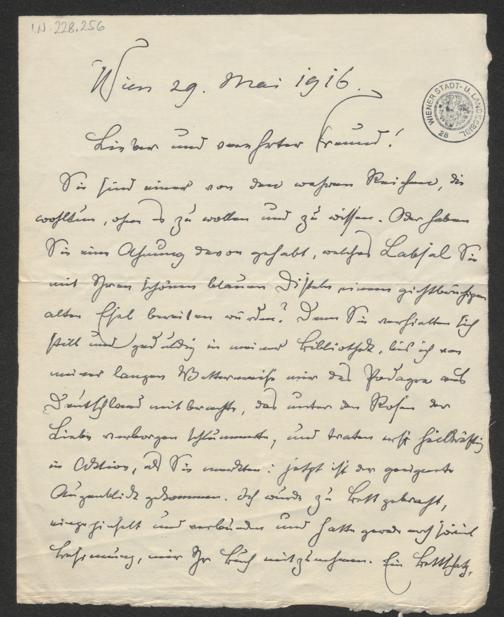 I.N. 228.256
WIENER STADT- U. LANDESBIBL.
28
Wien 29. Mai 1916.
Lieber und verehrter Freund!
Sie sind einer von den wahren Reichen, die
wohltun, ohne es zu wollen und zu wissen. Oder haben
Sie eine Ahnung davon gehabt, welches Labsal Sie
mit Ihren schönen blauen Disteln einem gichtbrüchigen
alten Esel bereiten würden? Denn Sie verhielten sich
still und geduldig in meiner Bibliothek, bis ich von
meiner langen Wetterreise mir das Podagra aus
Deutschland mitbrachte, das unter den Rosen der
Liebe verborgen schlummerte, und traten erst heilkräftig
in Aktion, als Sie merkten: jetzt ist der geeignete
Augenblick gekommen. Ich wurde zu Bett gebracht,
eingepinselt und verbunden und hatte gerade noch soviel
Besinnung, mir Ihr Buch mitzunehmen. Ein Bettschatz,